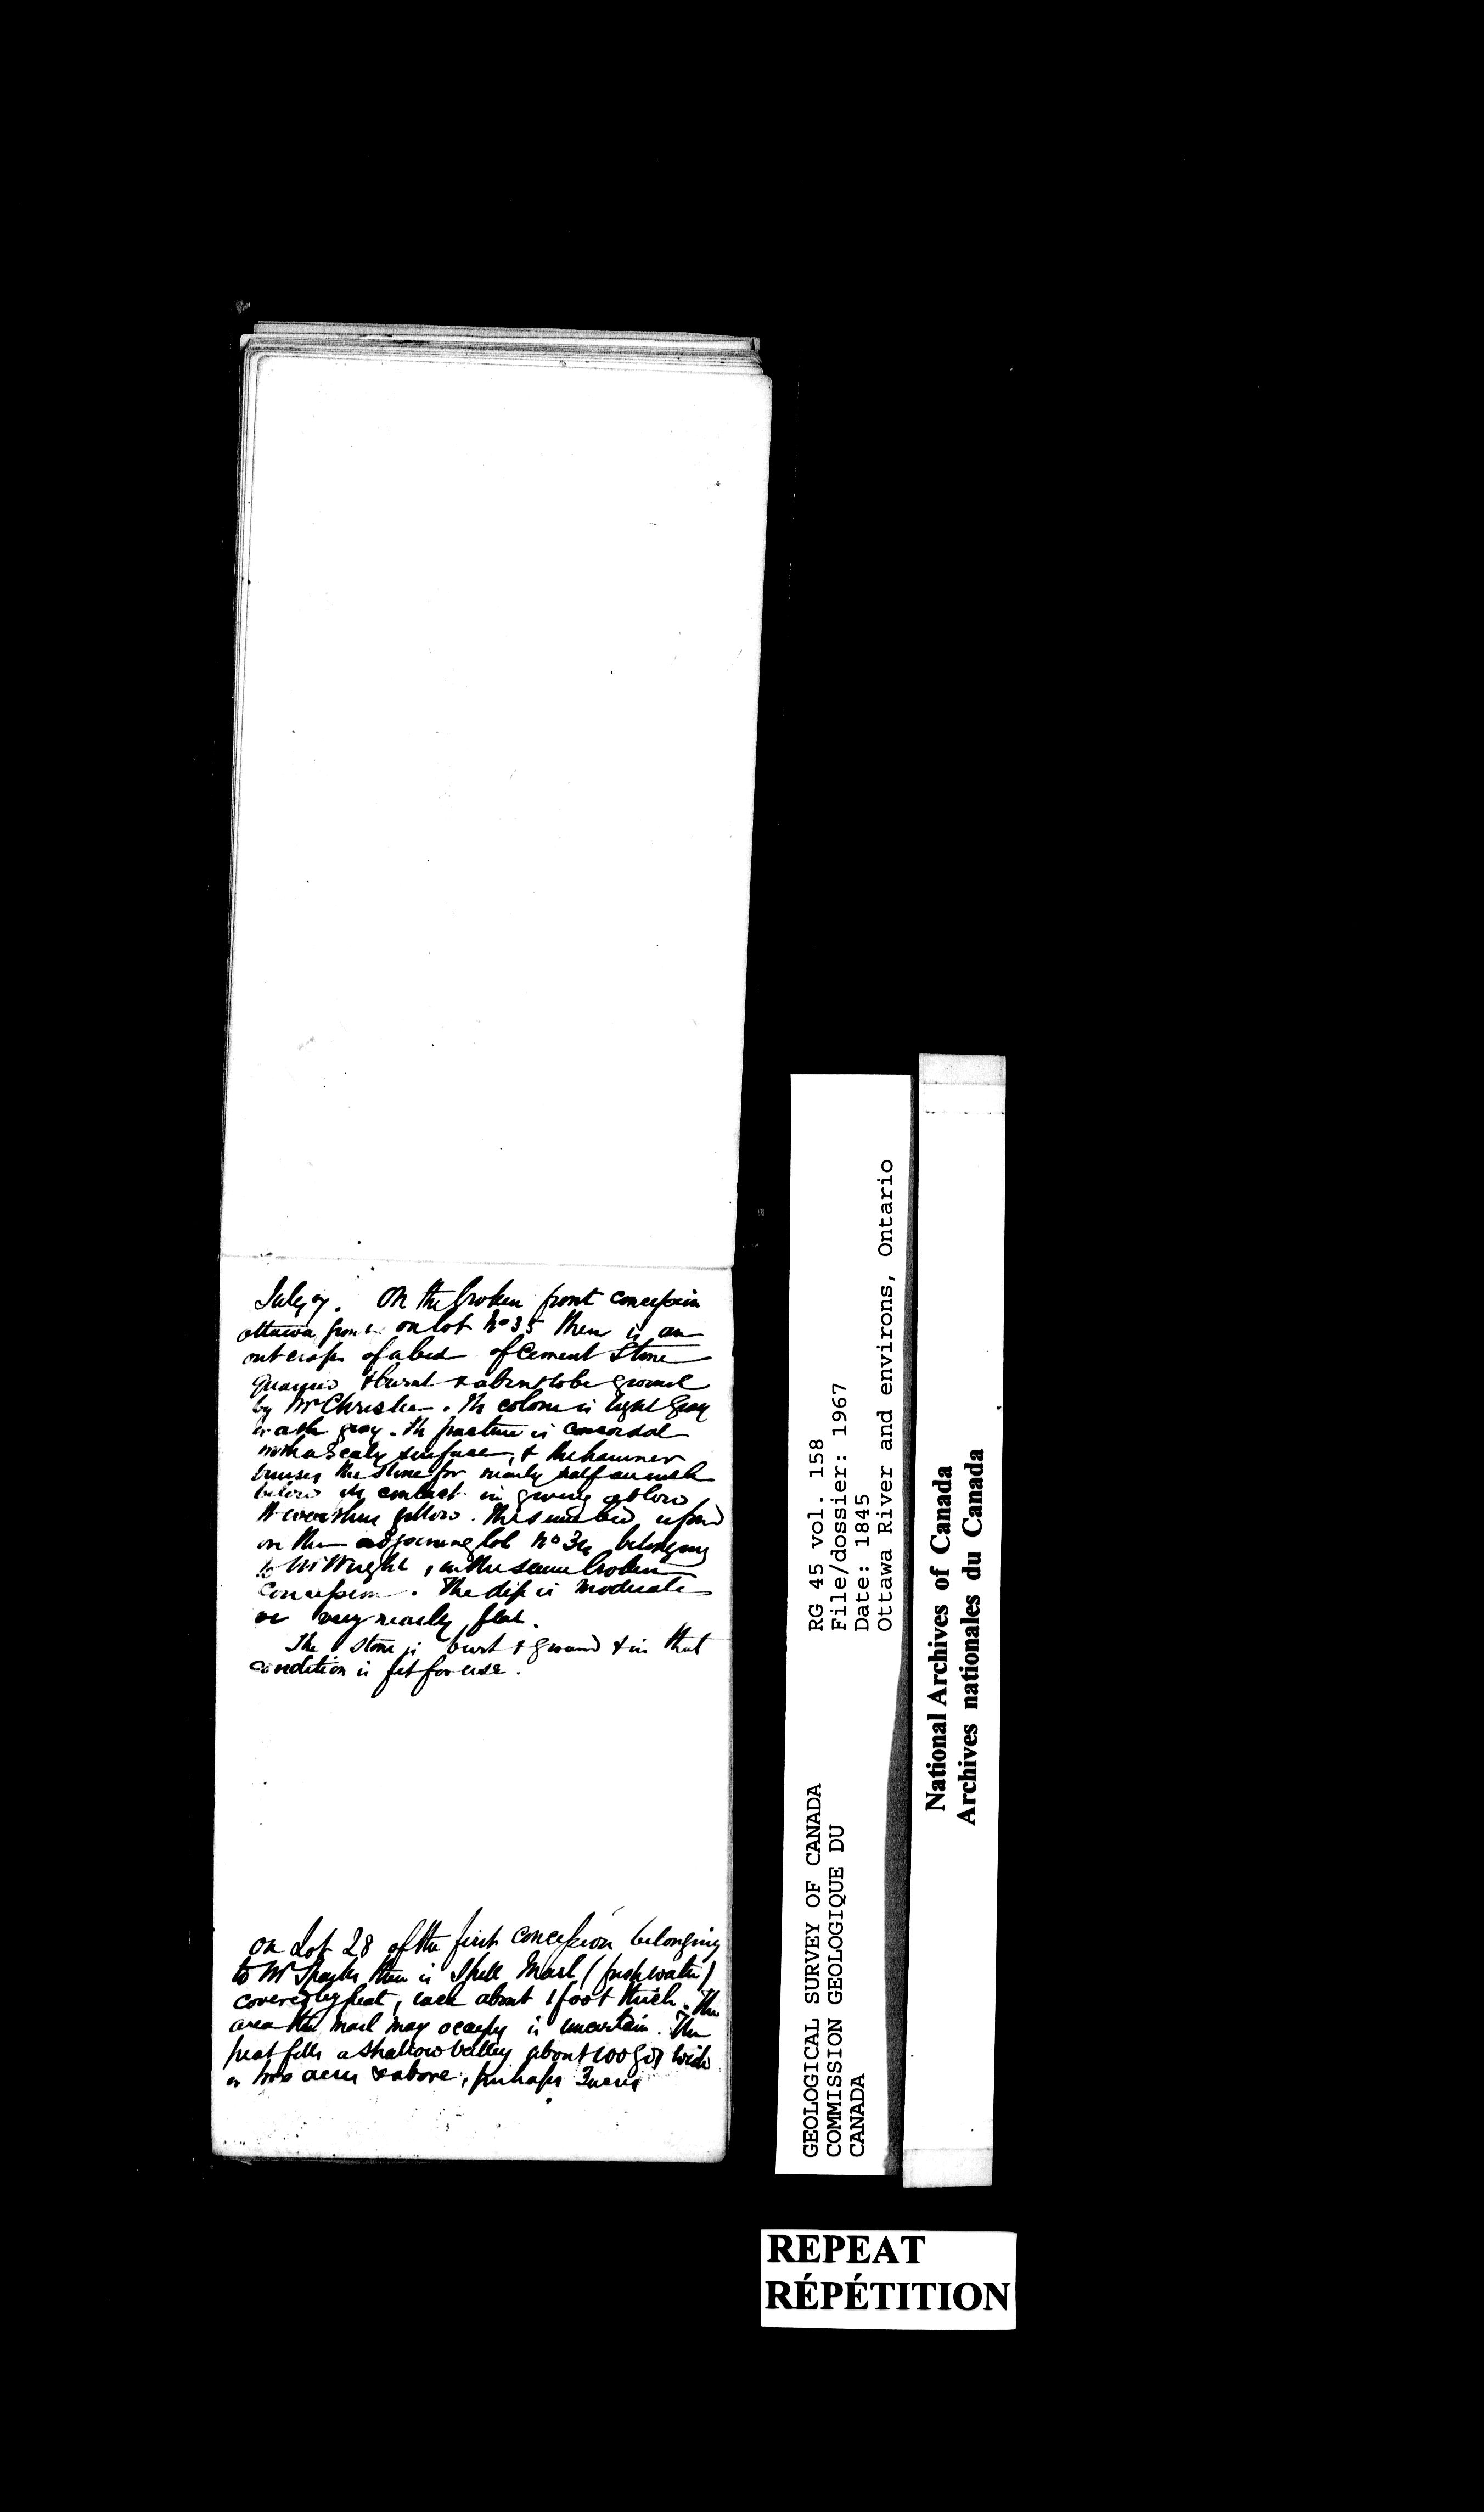 July 7. On the broken front concession
Ottawa front on lot No 35 there is an
outcrop of a bed of Cement Stone
quarried & burnt & about to be ground
by Mr Christie. The colour is light gray
or ash gray. The fracture is concoidal
with a scaly surface, & the hammer
bruises the stone for nearly half an inch
below its contact in giving a blow
It weathers yellow. The same bed is found
on the adjoining lot No 34 belonging
to Mr Wright, in the same broken
Concession. The dip is moderate
or very nearly flat.
The stone is burt & ground & in that
condition is fit for use.
On Lot 28 of the first concession belonging
to Mr Sparks there is Shell Marl (freshwater)
covered by peat, each about 1 foot thick. The
area the marl may occupy is uncertain. The
peat fills a shallow valley about 100 yds wide
or two acres & above, perhaps 3 acres
GEOLOGICAL SURVEY OF CANADA
COMMISSION GEOLOGIQUE DU
CANADA
RG 45 vol. 158
File/dossier: 1967
Date: 1845
Ottawa River and environs, Ontario
National Archives of Canada
Archives nationales du Canada
REPEAT
RÉPÉTITION